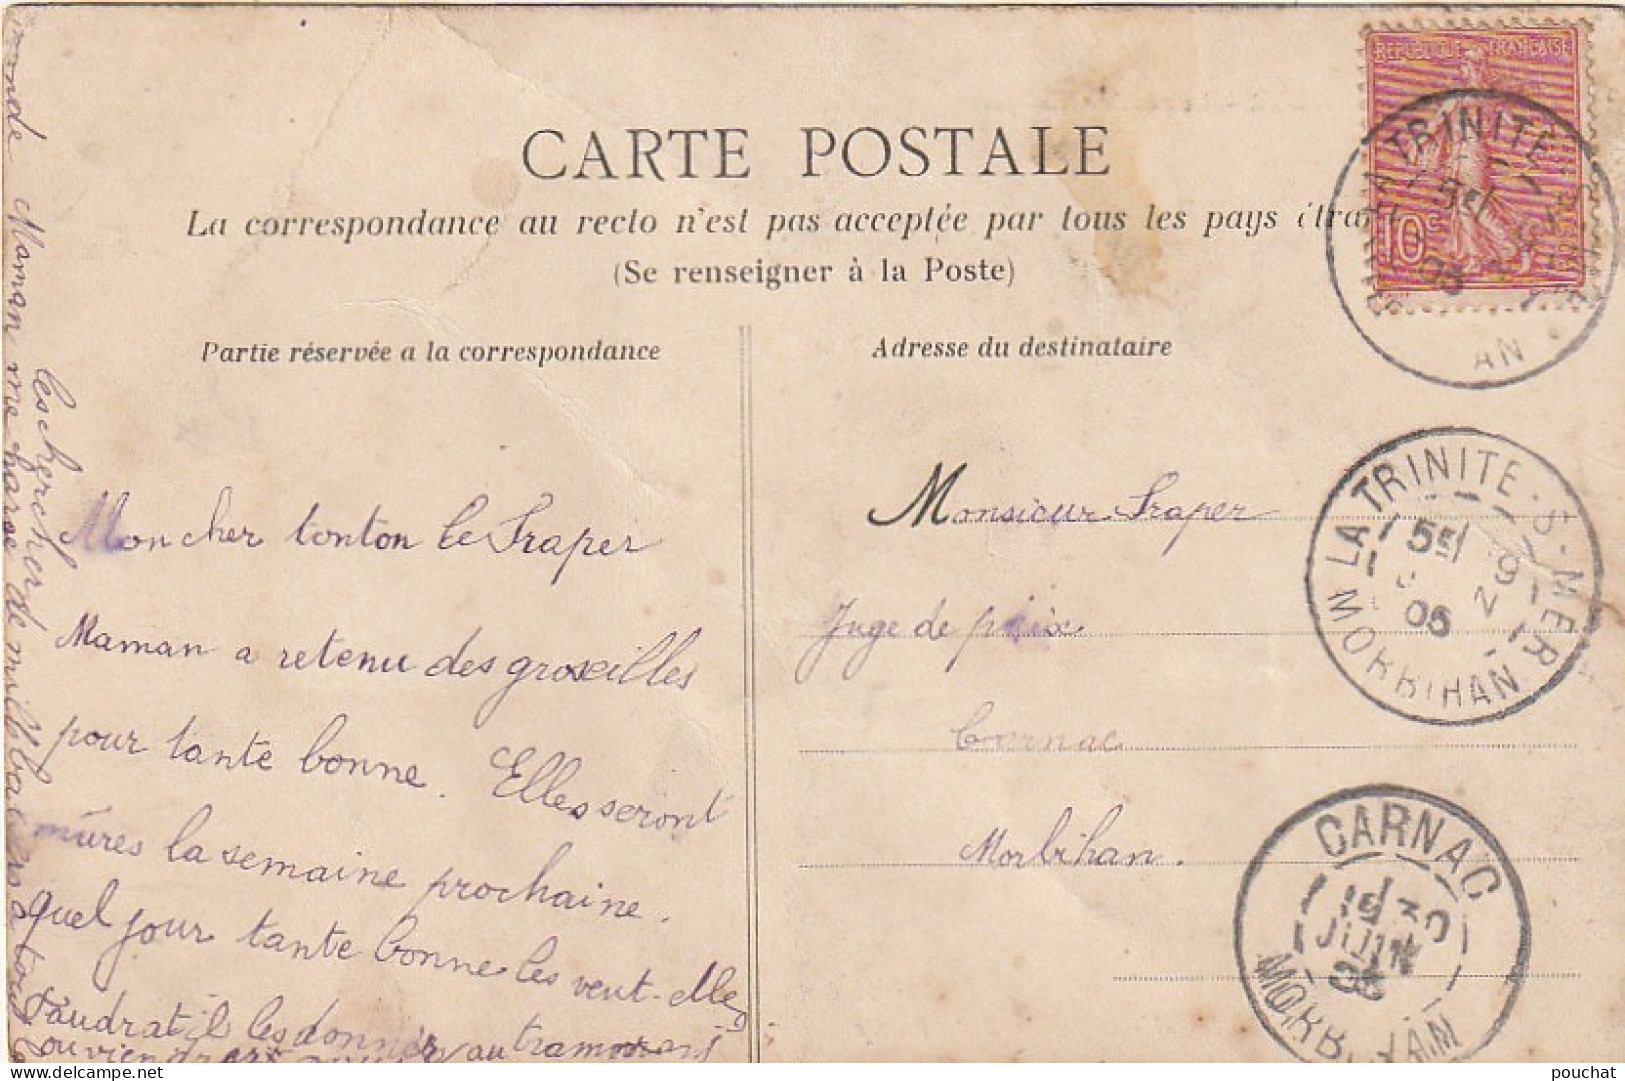 CARTE POSTALE
La correspondance au recto n'est pas acceptée par tous les pays étra
(Se renseigner à la Poste)
Partie réservée a la correspondance
Adresse du destinataire
REPUBLIQUE FRANÇAISE
10c
TRINITE
05
AN
LA TRINITE-S-MER
5E
29
05
MORBIHAN
CARNAC
1E 30
JUIN
05
MORBIHAN
Monsieur Fraper
Juge de paix
Carnac
Morbihan.
Mon cher tonton le Fraper
Maman a retenu des groseilles
pour tante bonne. Elles seront
mûres la semaine prochaine.
quel jour tante bonne les veut-elle
Faudrat il les donner au tram
ou viendr
les chercher
Maman me harse de mill baisers a tous
delcampe.net
pouchat